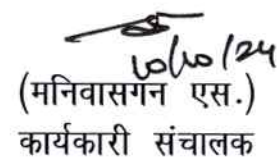 10/10/24
(मनिवासगन एस.)
कार्यकारी संचालक